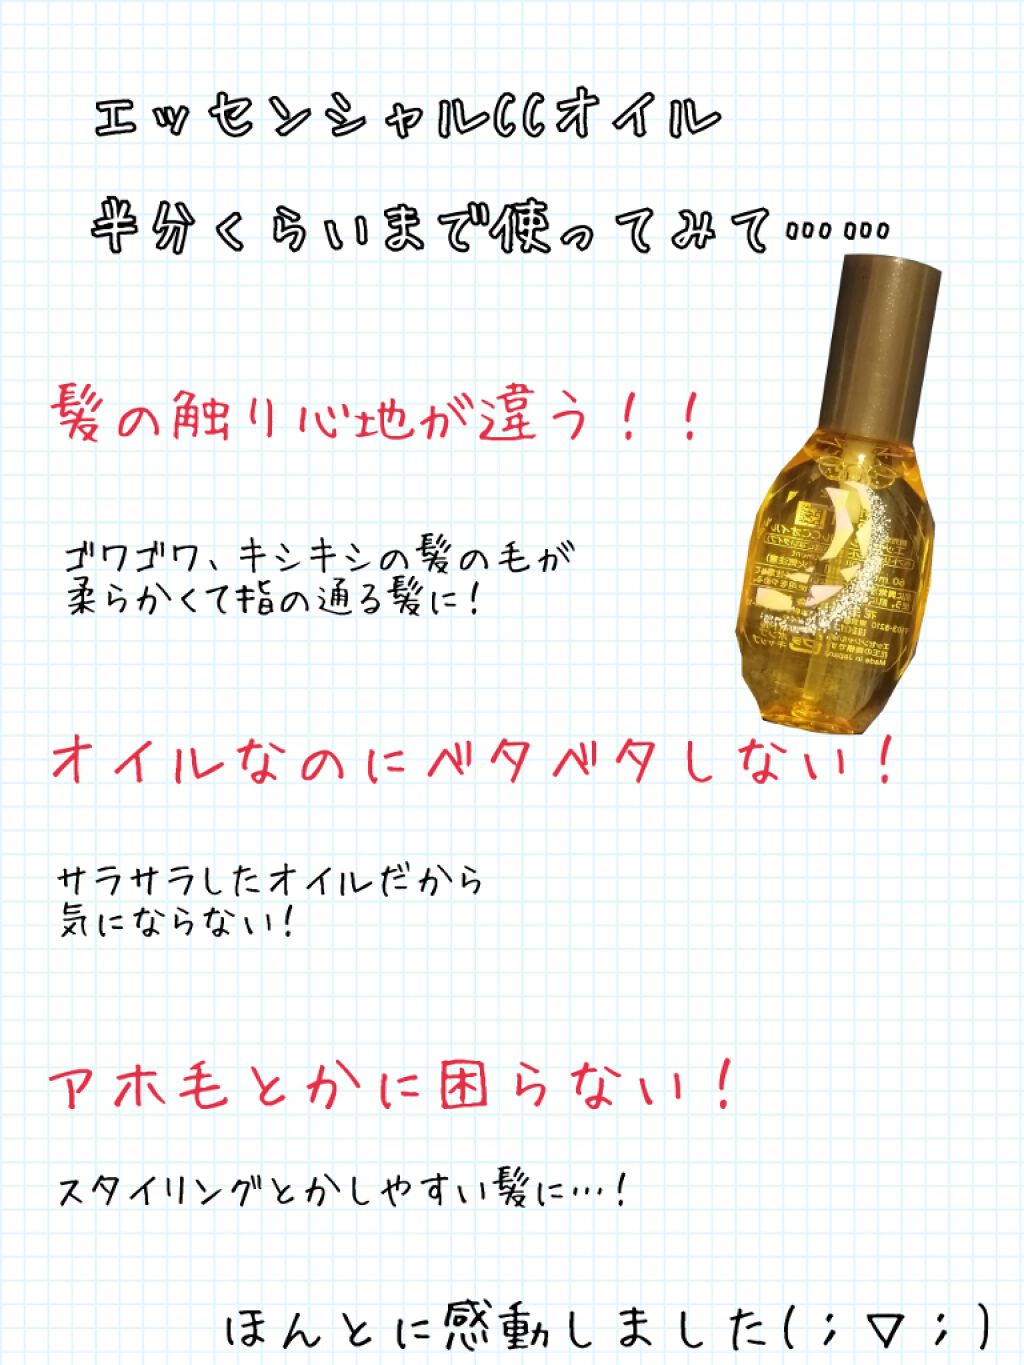 エッセンシャルCCオイル
半分くらいまで使ってみて……
髪の触り心地が違う！！
ゴワゴワ、キシキシの髪の毛が
柔らかくて指の通る髪に！
オイルなのにベタベタしない！
サラサラしたオイルだから
気にならない！
アホ毛とかに困らない！
スタイリングとかしやすい髪に…！
ほんとに感動しました(；▽；)
60 ml
Made in Japan